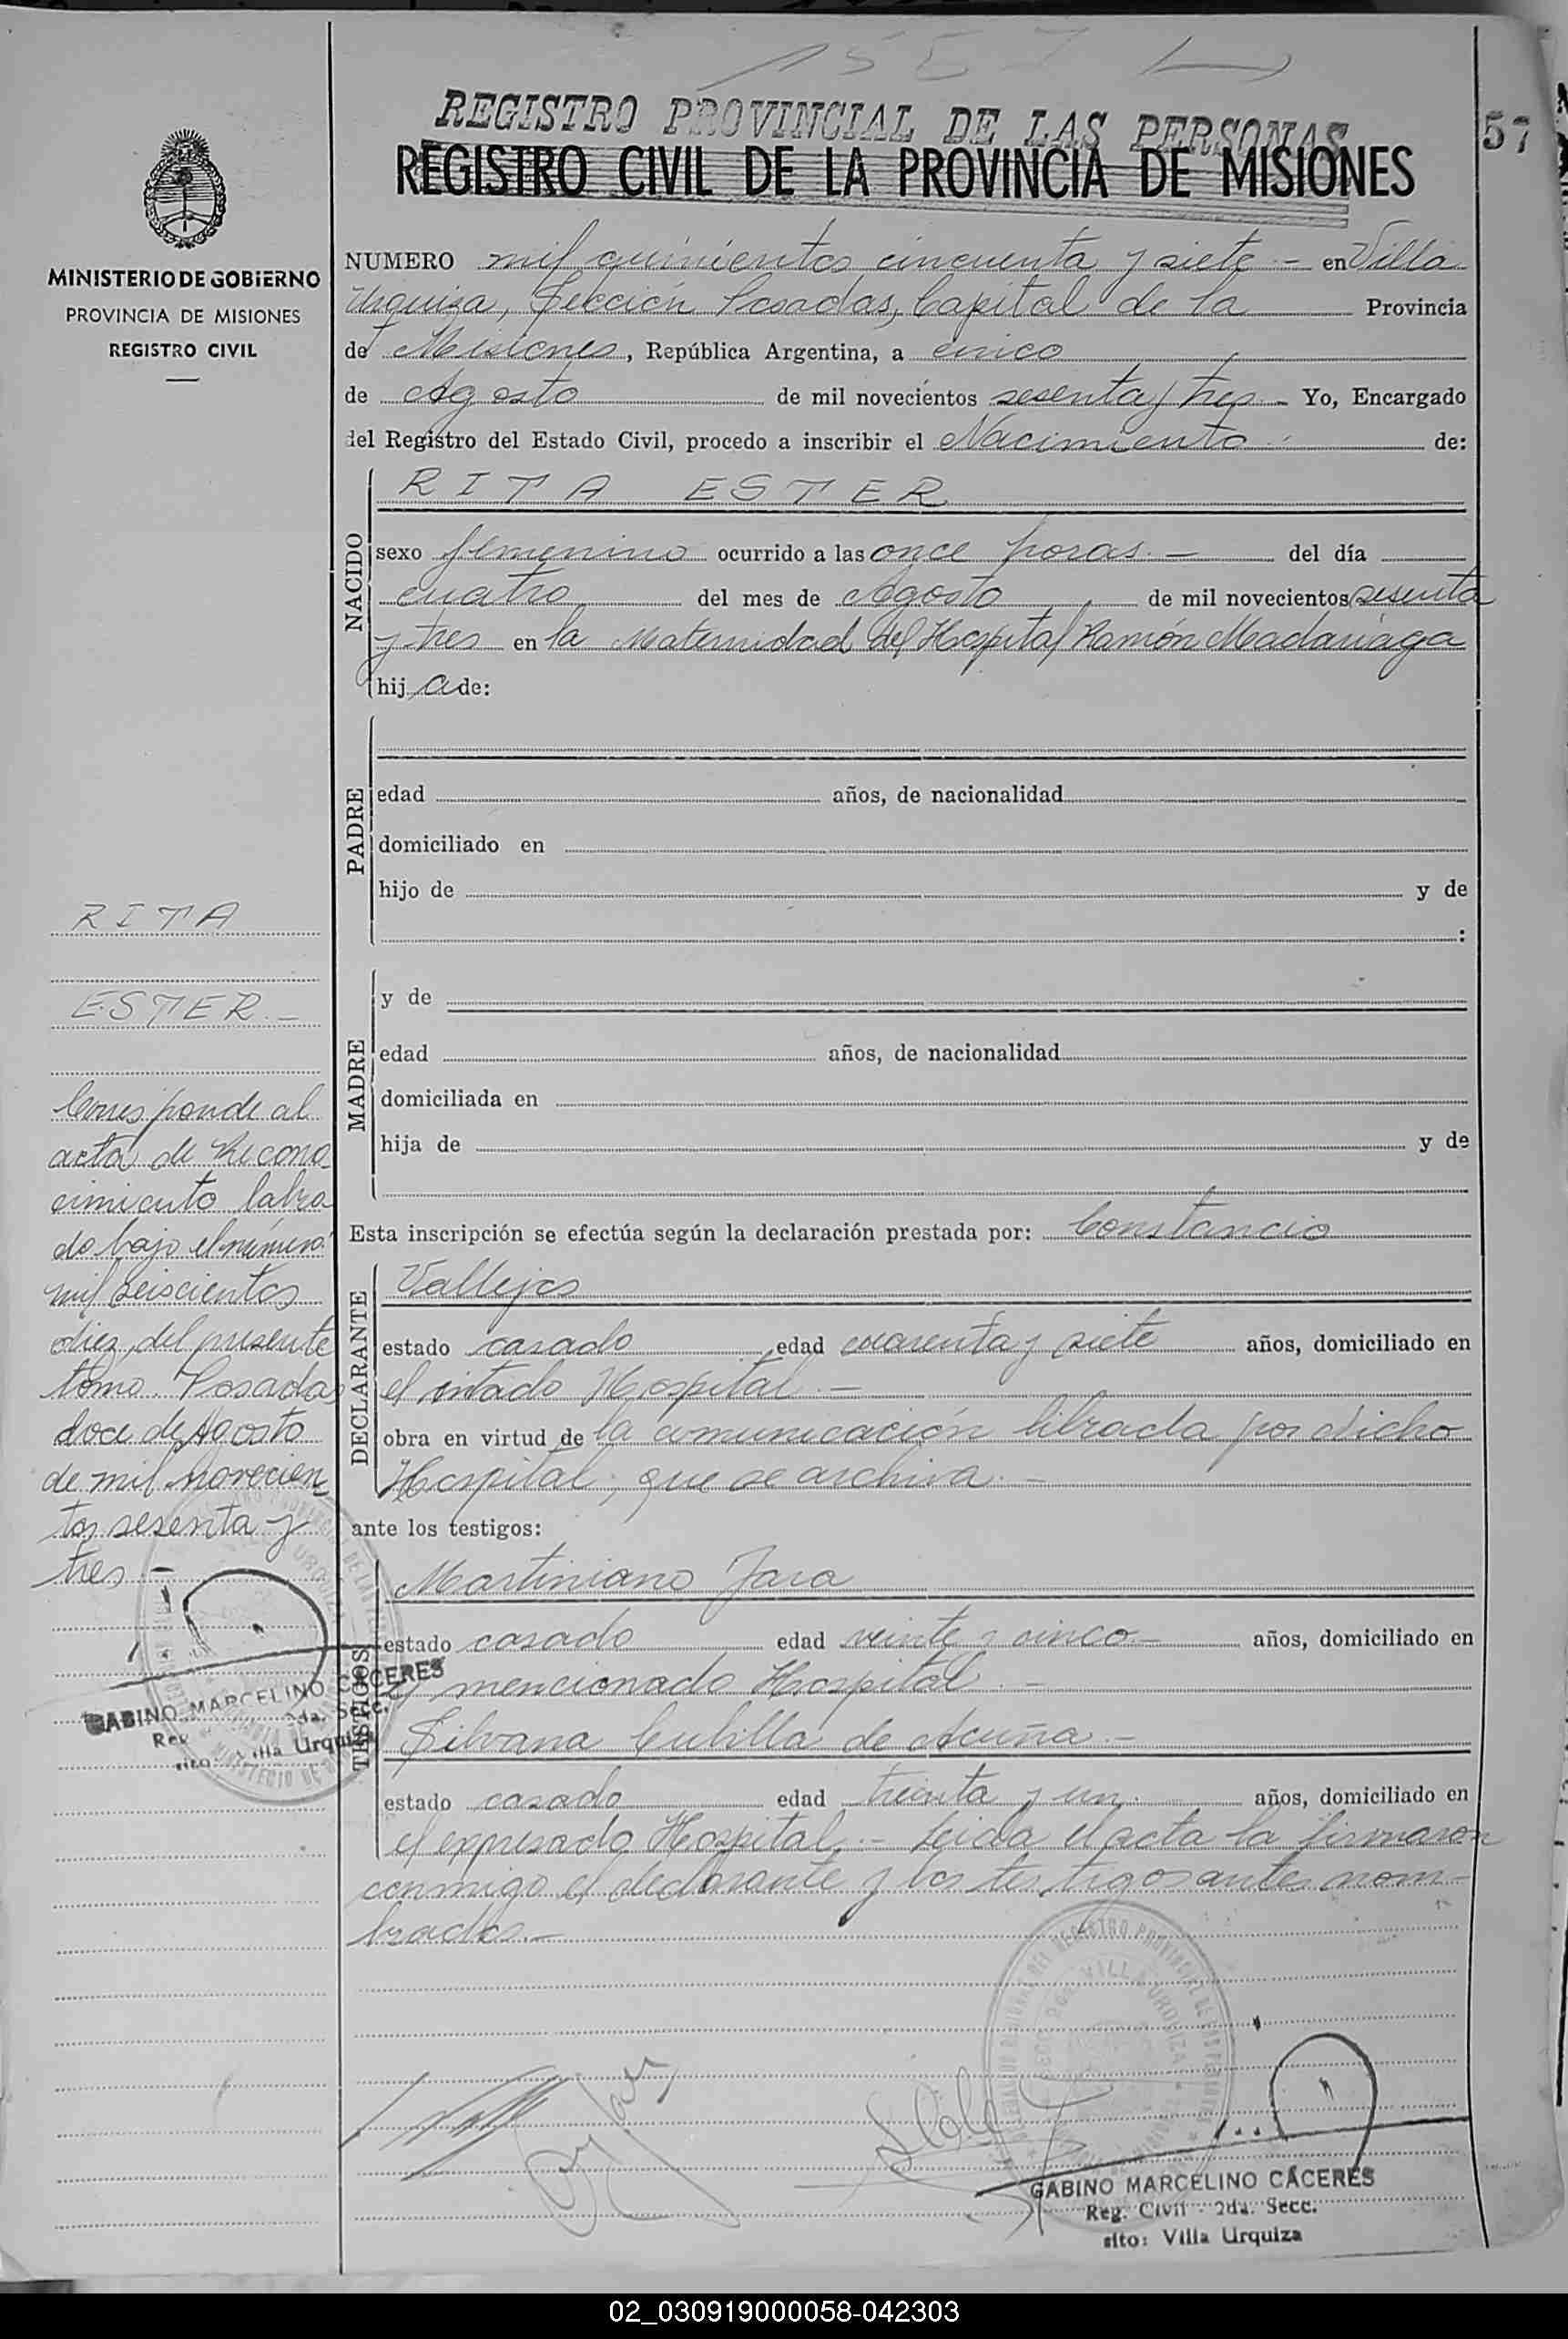 1557
REGISTRO PROVINCIAL DE LAS PERSONAS
REGISTRO CIVIL DE LA PROVINCIA DE MISIONES
57
MINISTERIO DE GOBIERNO
PROVINCIA DE MISIONES
REGISTRO CIVIL
NUMERO mil quinientos cincuenta y siete.- en Villa
Urquiza, Sección Posadas, Capital de la Provincia
de Misiones, República Argentina, a cinco
de Agosto de mil novecientos sesenta y tres.- Yo, Encargado
del Registro del Estado Civil, procedo a inscribir el Nacimiento.- de:
NACIDO
RITA ESTER
sexo femenino ocurrido a las once horas.- del día
cuatro del mes de Agosto de mil novecientos sesenta
y tres en la Maternidad del Hospital Ramón Madariaga
hij a de:
PADRE
edad años, de nacionalidad
domiciliado en
hijo de y de
:
MADRE
y de
edad años, de nacionalidad
domiciliada en
hija de y de
Esta inscripción se efectúa según la declaración prestada por: Constancio
DECLARANTE
Vallejos
estado casado edad cuarenta y siete años, domiciliado en
el citado Hospital.-
obra en virtud de la comunicación librada por dicho
Hospital, que se archiva.-
ante los testigos:
TESTIGOS
Martiniano Jara
estado casado edad veinte y cinco.- años, domiciliado en
el mencionado Hospital.-
Silvana Cubilla de Acuña.-
estado casado edad treinta y un. años, domiciliado en
el expresado Hospital.- Leida el acta la firmaron
conmigo el declarante y los testigos antes nom-
brados.-
GABINO MARCELINO CÁCERES
Reg. Civil - 2da. Secc.
sito: Villa Urquiza
RITA
ESTER.-
Corresponde al
acta de Recono
cimiento labra
do bajo el número
mil seiscientos
diez, del presente
tomo. Posadas
doce de Agosto
de mil novecien
tos sesenta y
tres.-
GABINO MARCELINO CÁCERES
2da. Secc.
sito: Villa Urquiza
02_030919000058-042303